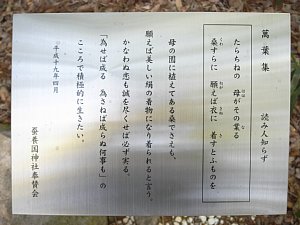 萬葉集　　読み人知らず
たらちねの　母がその業る
桑すらに　願えば衣に　着すとふものを
母の園に植えてある桑でさえも、
願えば美しい絹の着物になり着られると言う。
かなわぬ恋も誠を尽くせば必ず実る。
「為せば成る　為さねば成らぬ何事も」の
こころで積極的に生きたい。
平成十九年四月
蚕養国神社奉賛会